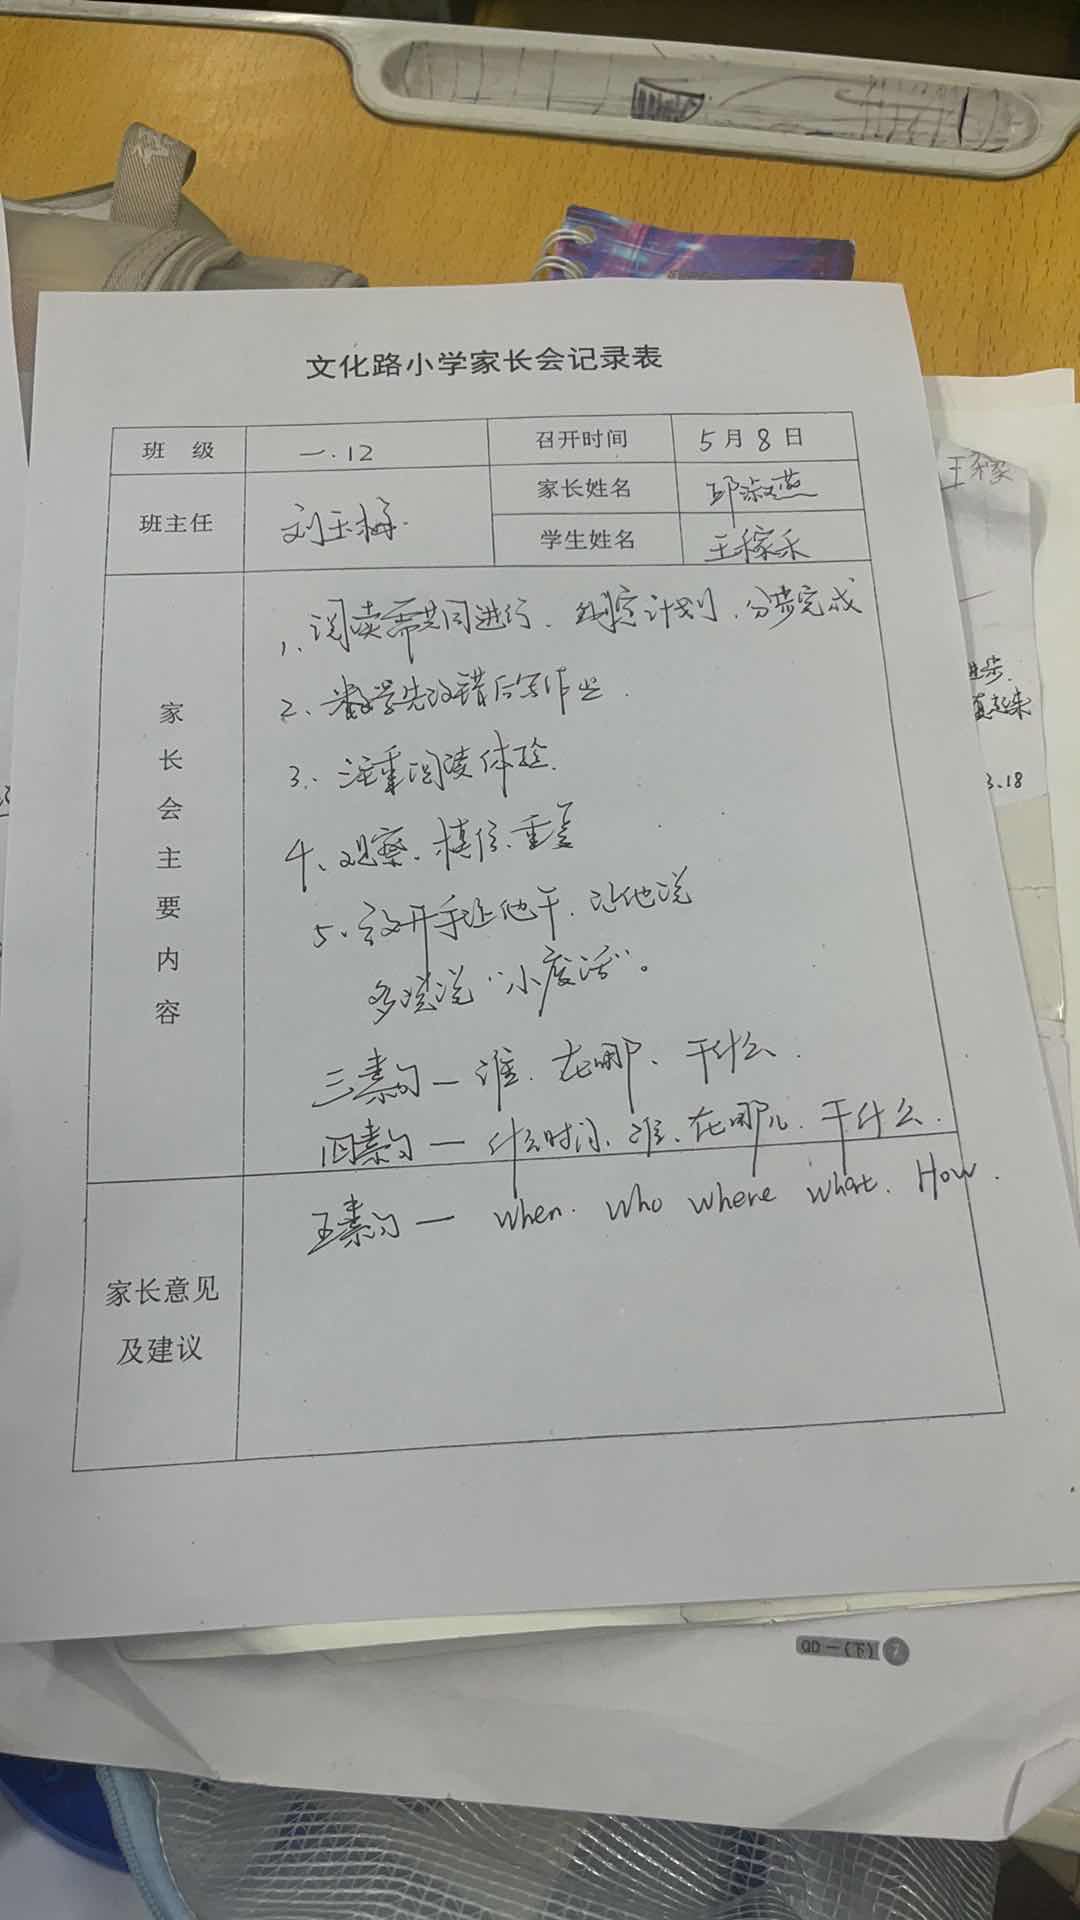 文化路小学家长会记录表
班 级 一.12 召开时间 5月8日
班主任 刘玉梅 家长姓名 邱淑燕
学生姓名 王稼禾
家长会主要内容
1、阅读需共同进行、制定计划、分步完成
2、数学先改错后写作业.
3、注重阅读体验.
4、观察、模仿、重复
5、放开手让他干、让他说
多说说“小废话”。
三素句一谁、在哪、干什么.
四素句一什么时间、谁、在哪儿、干什么.
五素句一 when. who where what. How.
家长意见
及建议
王稼
进步.
3.18
QD一(下)